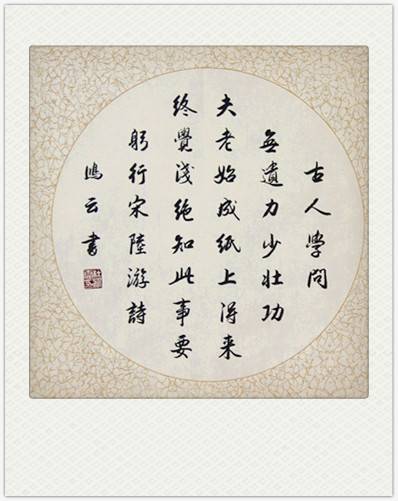 古人學問
無遺力少壮功
夫老始成纸上得来
终覺淺绝知此事要
躬行宋陸游詩
鸿云書